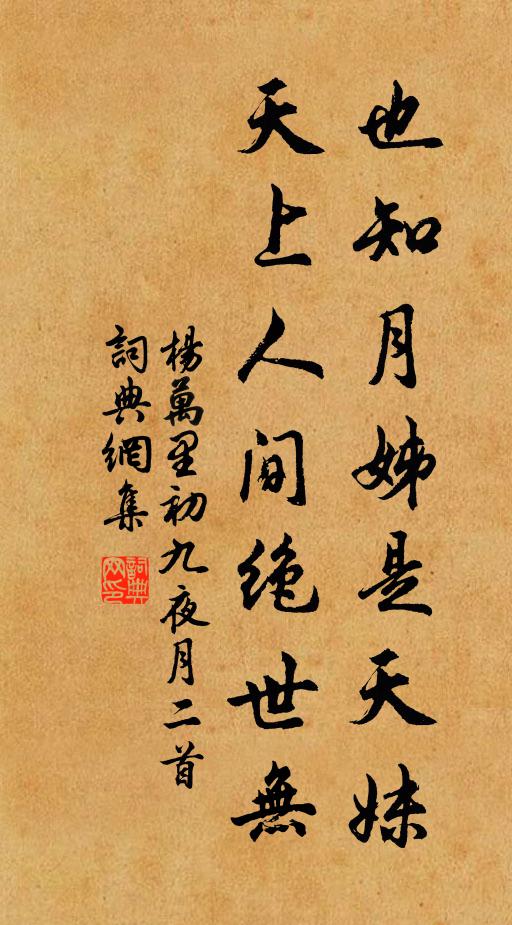 也知月姊是天妹
天上人间绝世無
楊萬里初九夜月二首
詞典網集
詞典网印